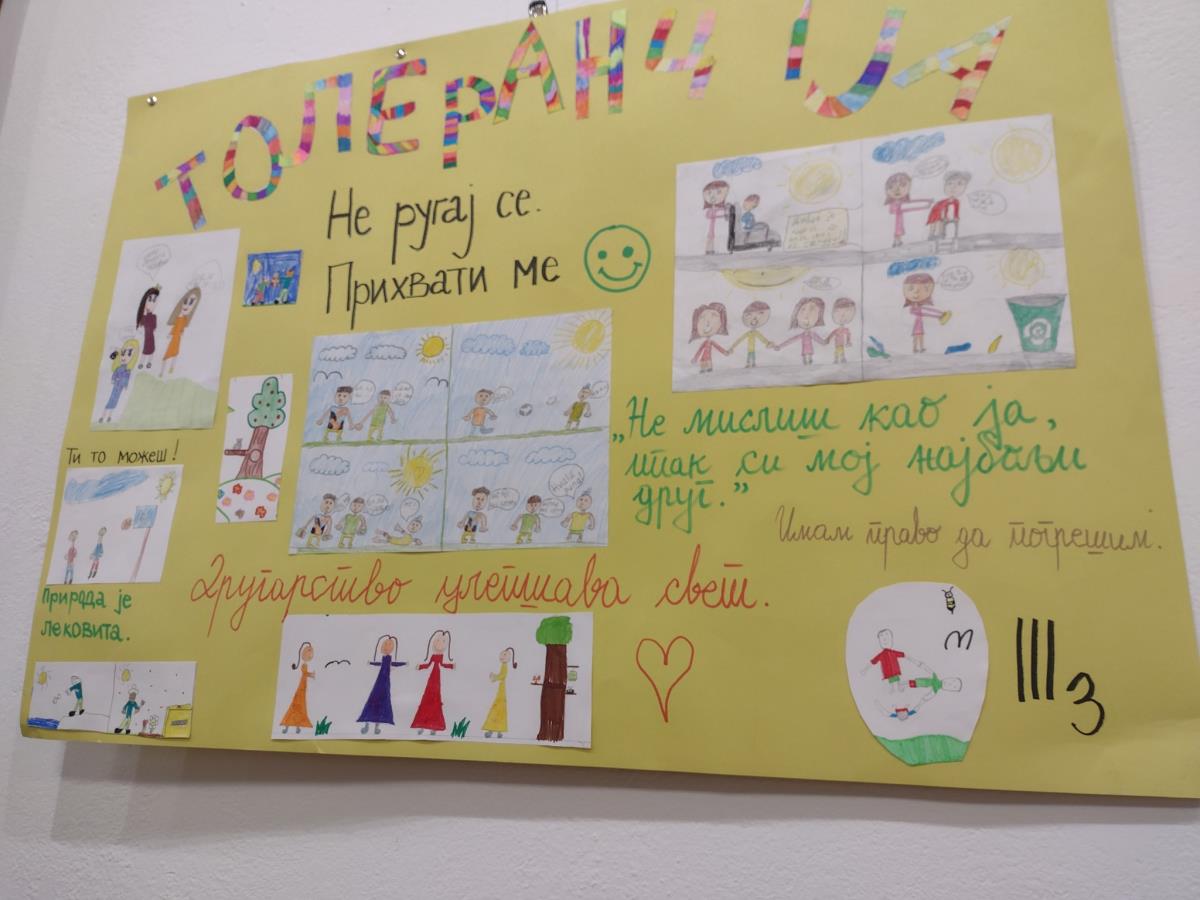 ТОЛЕРАНЦИЈА
Не ругај се.
Прихвати ме
„Не мислиш као ја,
ипак си мој најбољи
друг.”
Ти то можеш!
Имам право да погрешим.
Другарство улепшава свет.
Природа је
лековита.
III 3